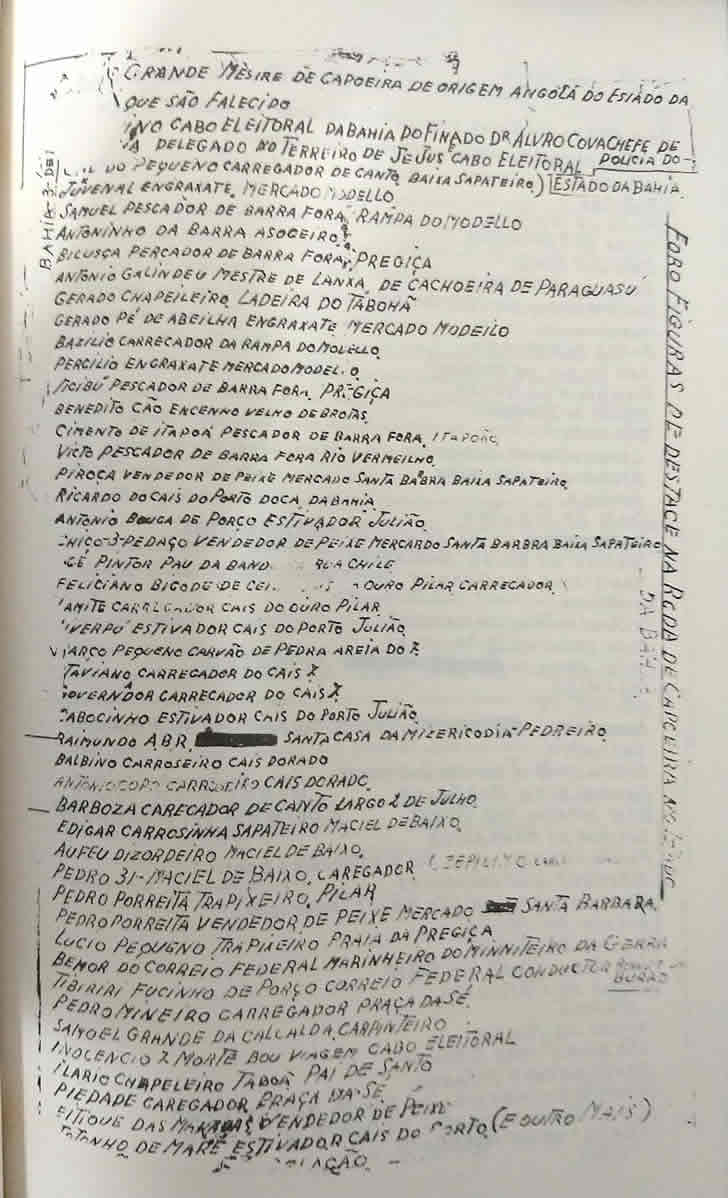 GRANDE MÈSIRE DE CAPOEIRA DE ORIGEM ANGOLA DO ESTADO DA
QUE SÃO FALECIDO
CABO ELEITORAL DA BAHIA DO FINADO DR ALVRO COVA CHEFE DE
DELEGADO NO TERREIRO DE JEJUS CABO ELEITORAL POLICIA DO
DO PEQUENO CARREGADOR DE CANTO BAIXA SAPATEIRO) ESTADO DA BAHIA
JUVENAL ENGRAXATE. MERCADO MODELLO
SAMUEL PESCADOR DE BARRA FORA RAMPA DO MODELLO
ANTONINHO DA BARRA ASOGEIRO
BILUSCA PERCADOR DE BARRA FORA PREGIÇA
ANTONIO GALINDEU MESTRE DE LANXA, DE CACHOEIRA DE PARAGUASU
GERADO CHAPEILEIRO LADEIRA DO TABOHÃ
GERADO PÉ DE ABEILHA ENGRAXATE MERCADO MODEILO
BAZILIO CARREGADOR DA RAMPA DO MODELLO
PERCILIO ENGRAXATE MERCADO
PESCADOR DE BARRA FORA PREGIÇA
BENEDITO CÃO ENGENHO VELHO DE BROTAS
CIMENTO DE ITAPOÁ PESCADOR DE BARRA FORA
VICTO PESCADOR DE BARRA FORA RIO VERMEILHO
PIROÇA VENDEDOR DE PEIXE MERCADO SANTA BABRA BAILA SAPATEIRO
RICARDO DO CAIS DO PORTO DOCA DA BAHIA
ANTONIO BOUCA DE PORCO ESTIVADOR JULIÃO
CHICO-3-PEDAÇO VENDEDOR DE PEIXE MERCARDO SANTA BARBRA BAILA SAPATEIRO
PINTOR PAU DA BAND RUA CHILE
FELICIANO BIGODE DE OURO PILAR CARREGADOR
CARREGADOR CAIS DO OURO PILAR
ESTIVADOR CAIS DO PORTO JULIÃO
MARÇO PEQUENO CARVÃO DE PEDRA AREIA DO
CARREGADOR DO CAIS
GOVERNADOR CARREGADOR DO CAIS
CABOCINHO ESTIVADOR CAIS DO PORTO JULIÃO
RAIMUNDO ABR. SANTA CASA DA MIZERICODIA PEDREIRO
BALBINO CARROSEIRO CAIS DORADO
ANTONIO CARROSEIRO CAIS DORADO
BARBOZA CARECADOR DE CANTO LARGO 2 DE JULHO
EDIGAR CARROSINHA SAPATEIRO MACIEL DE BAIXO
AUFEU DIZORDEIRO MACIEL DE BAIXO
PEDRO 31-MACIEL DE BAIXO, CAREGADOR
PEDRO PORREITA TRAPIXEIRO, PILAR
PEDRO PORREITA VENDEDOR DE PEIXE MERCADO SANTA BARBARA
LUCIO PEQUENO TRAPIXEIRO PRAIA DA PREGIÇA
BEMOR DO CORREIO FEDERAL MARINHEIRO DO MINNITEIRO DA GERRA
TIBIRIRI FUCINHO DE PORCO CORREIO FEDERAL CONDUCTOR
PEDRO MINEIRO CARREGADOR PRAÇA DA SÉ
SAMOEL GRANDE DA CALCALDA, CARPINTEIRO
INOCENCIO 7 MORTE BOU VIAGEM CABO ELEITORAL
ILARIO CHAPELEIRO TABOÃ PAI DE SANTO
PIEDADE CAREGADOR PRAÇA DA SÉ
DAS VENDEDOR DE PEIXE
DE MARÉ ESTIVADOR CAIS DO PORTO (E OUTRO MAIS)
FORO FIGURAS DE DESTACE NA RODA DE CAPOEIRA